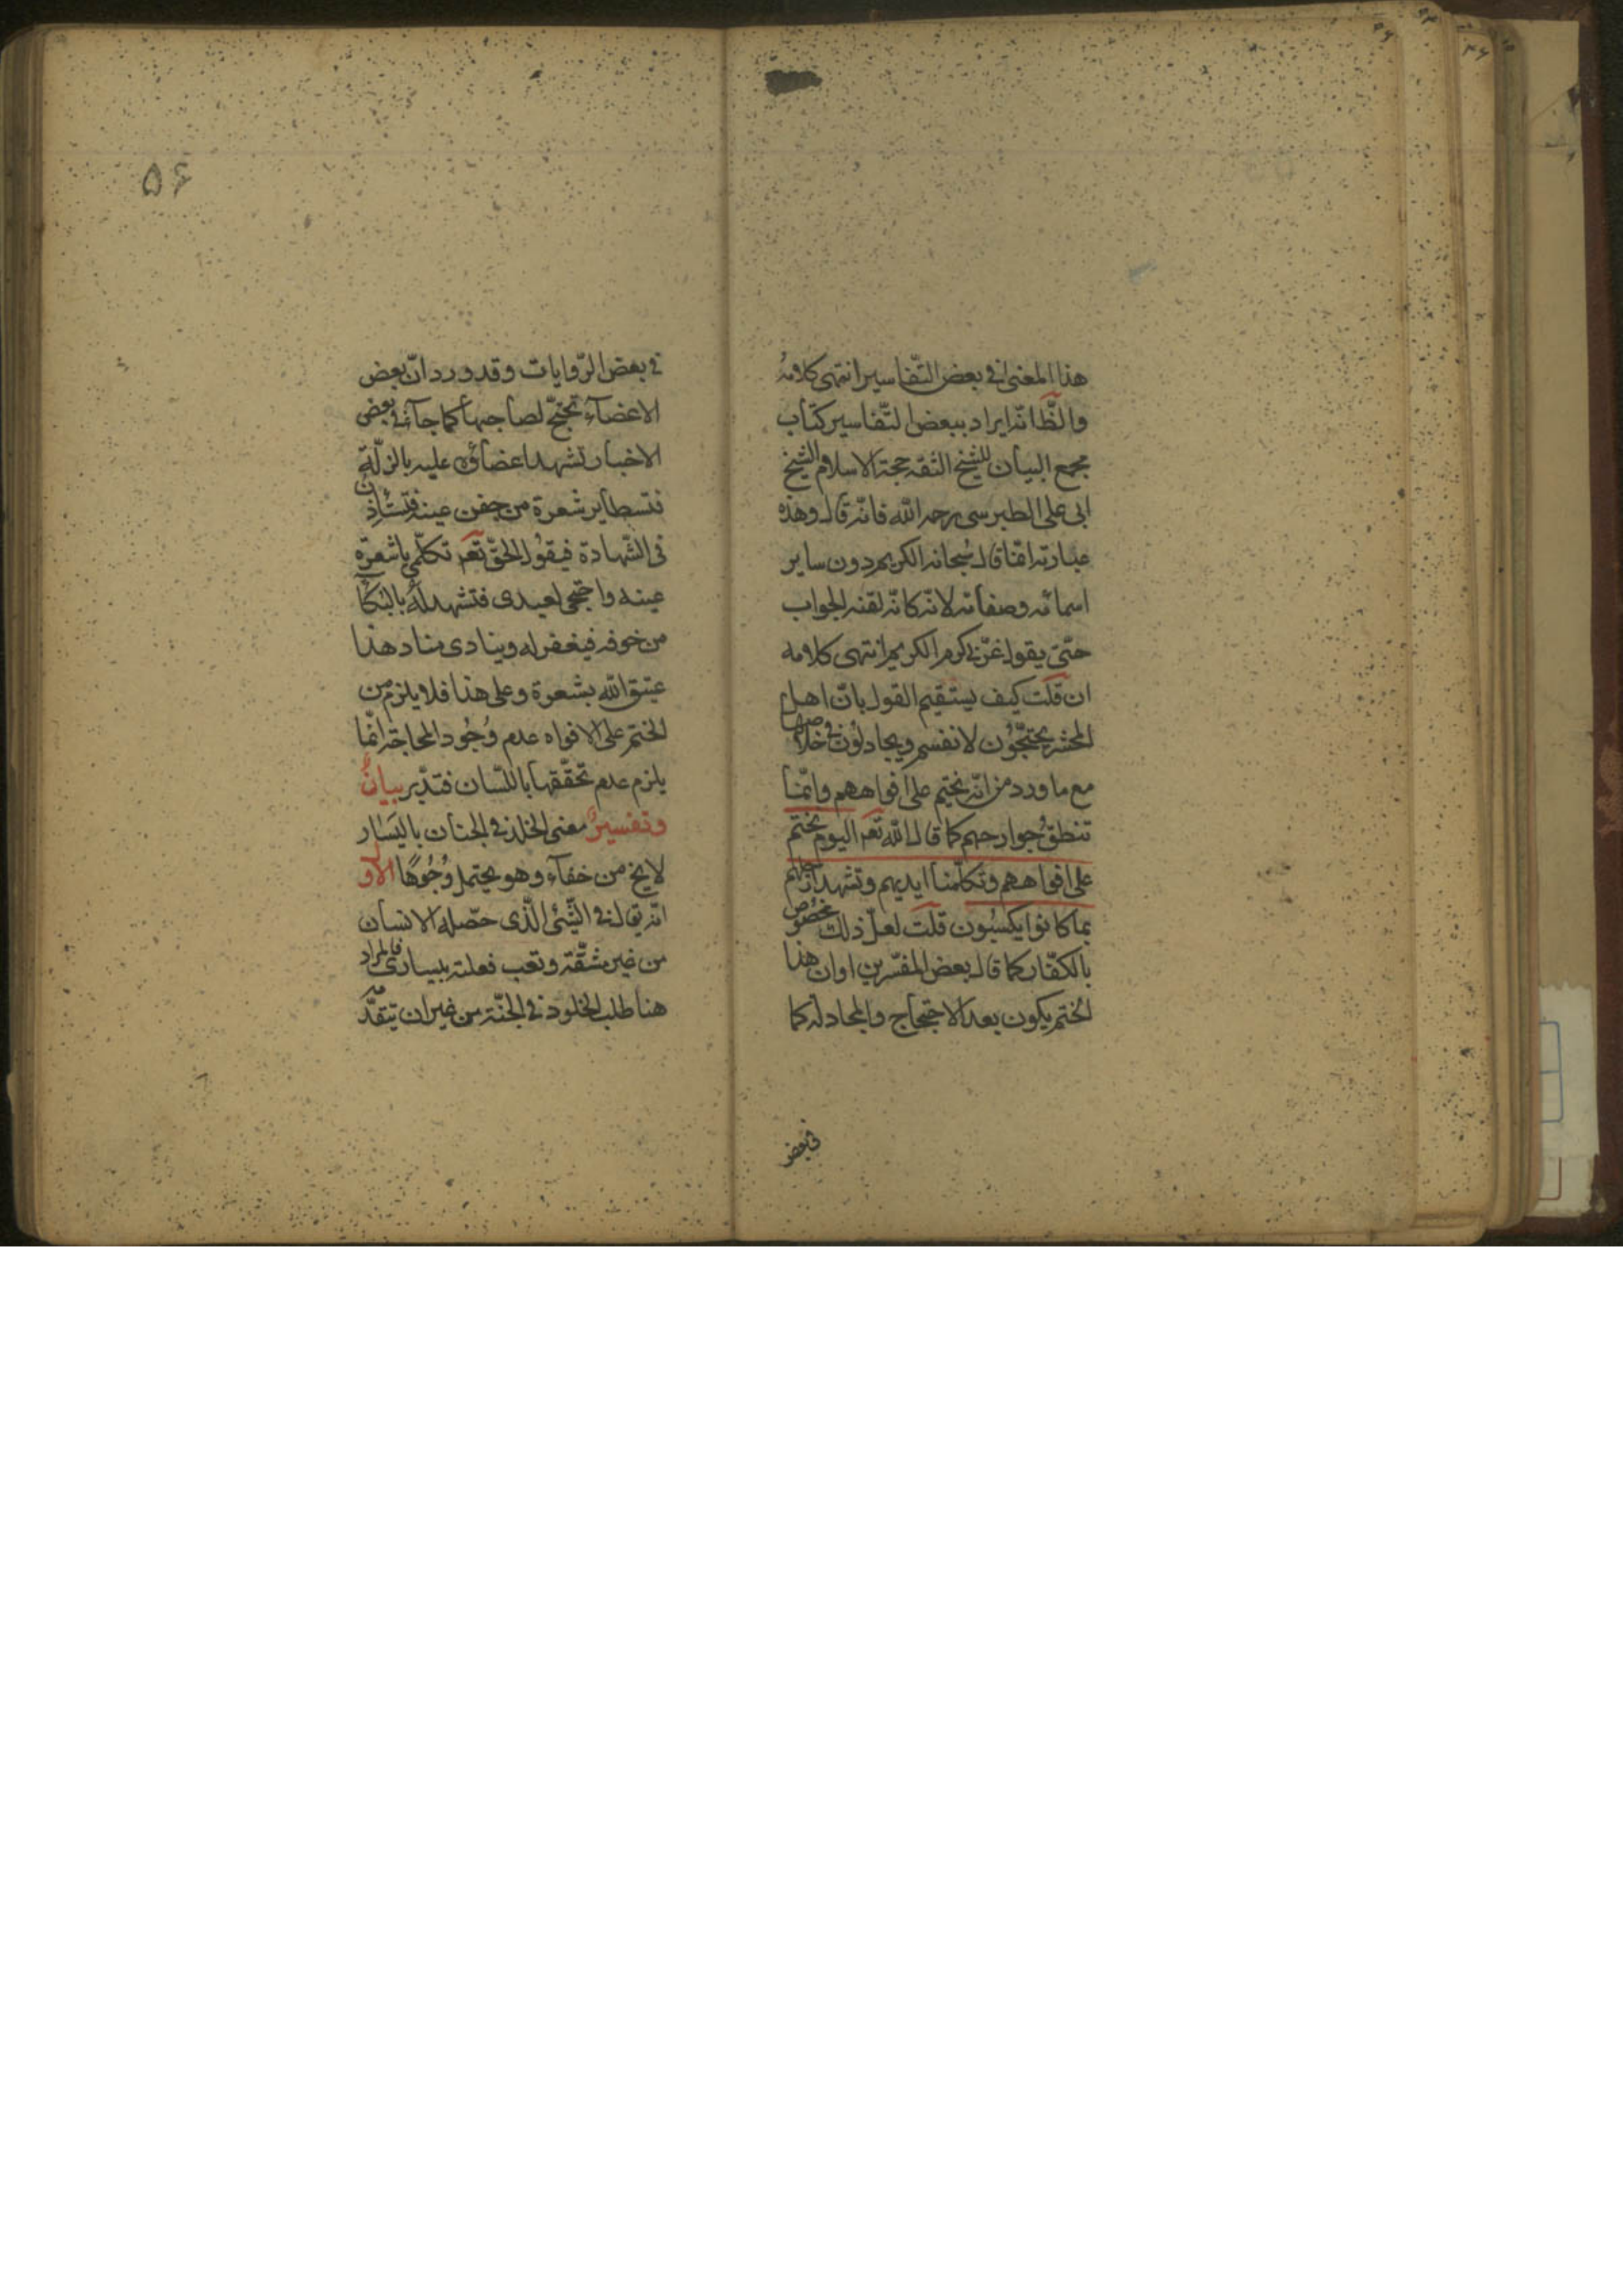 هذا المعنى فى بعض التّفاسير انتهى كلامهُ
والظّ انّه ايراد ببعض التّفاسير كتاب
مجمع البيان للشيخ الثقه حجة الاسلام الشيخ
ابى على الطبرسى رحمه الله فانّه قال وهذه
عبارته انّما قال سُبحانه الكريم دون ساير
اسمائه وصفاته لانّه كانّه لقنه الجواب
حتّى يقول غرّنى كرم الكريم انتهى كلامه
ان قلت كيف يستقيم القول بانّ اهل
المحشر يحتجّون لانفسهم ويجادلون فى خلاصها
مع ما ورد من انّه نختم على افواههم وانّما
تنطق جوارحهم كما قال الله تعَم اليوم نختم
على افواههم وتكلّمنا ايديهم وتشهد ارجلهم
بما كانوا يكسبُون قلت لعلّ ذلك مخصُوص
بالكفّار كما قال بعض المفسّرين او ان هذا
الختم يكون بعد الاحتجاج والمجادله كما
فى بعض
۵۶
فى بعض الرّوايات وقد ورد انّ بعض
الاعضآء تحتجّ لصاحبها كما جآء فى بعض
الاخبار تشهد اعضاؤه عليه بالزلّة
فتسطاير شعرة من جفن عينه فتستأذن
فى الشّهادة فيقول الحقّ تعَم تكلّمى يا شعرة
عينه واحتجى لعبدى فتشهد له بالبكآ
من خوفه فيغفر له وينادى مناد هذا
عتيق الله بشعرة وعلى هذا فلا يلزم من
الختم على الافواه عدم وُجُود المحاجة انّما
يلزم عدم تحقّقها باللسان فتدّبر بيانٌ
وتفسيرٌ معنى الخلد فى الجنان باليَسار
لا يخ من خفآء وهو يحتمل وُجُوهًا الأوّ
انّه يقال فى الشّئ الّذى حصّله الانسان
من غير مشقّة وتعب فعلته بيسارى فالمراد
هنا طلب الخلود فى الجنّة من غير ان يتقدّمه